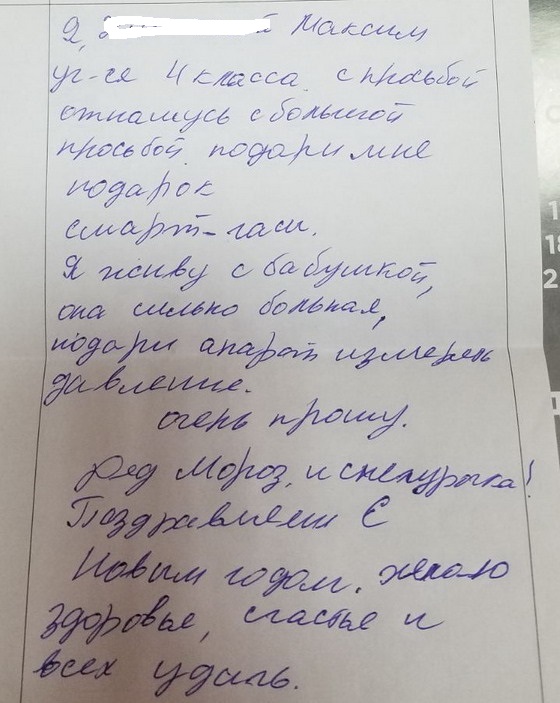 Я, й Максим
уг-ся 4 класса с просьбой
отнашусь с большой
просьбой подари мне
подарок
смарт-гасы.
Я живу с бабушкой,
она сильно больная,
подари апарат измерять
давление.
очень прошу.
Дед Мороз, и снегурочка!
Поздравляем С
Новым годом. желаю
здоровье, счастье и
всех удачь.
1
18
2